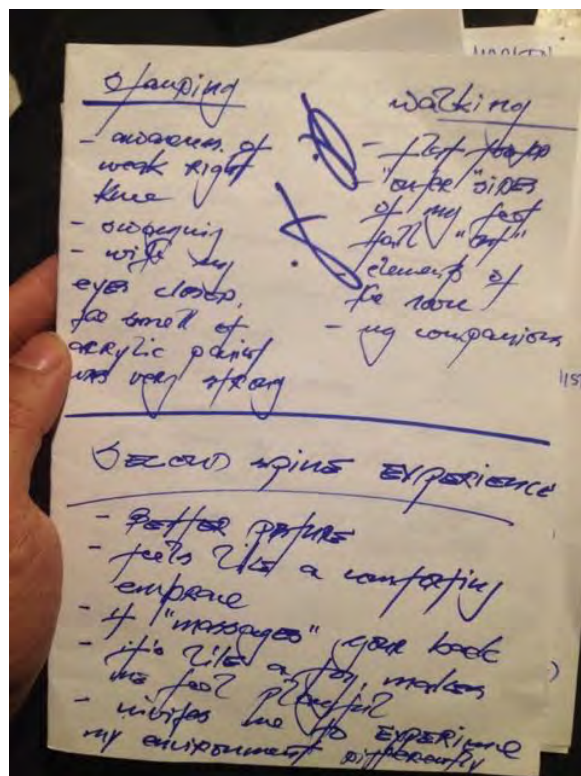 Standing
- awareness of
weak right
knee
- swaying
- with my
eyes closed,
the smell of
acrylic paint
was very strong
Walking
- flat foot
- "outer" sides
of my feet
fall "out"
elements of
the room
- my companions
SECOND spine EXPERIENCE
- BETTER posture
- feels like a comforting
embrace
- it "massages" your back
- it's like a toy, makes
me feel playful
- invites me to EXPERIENCE
my environment differently